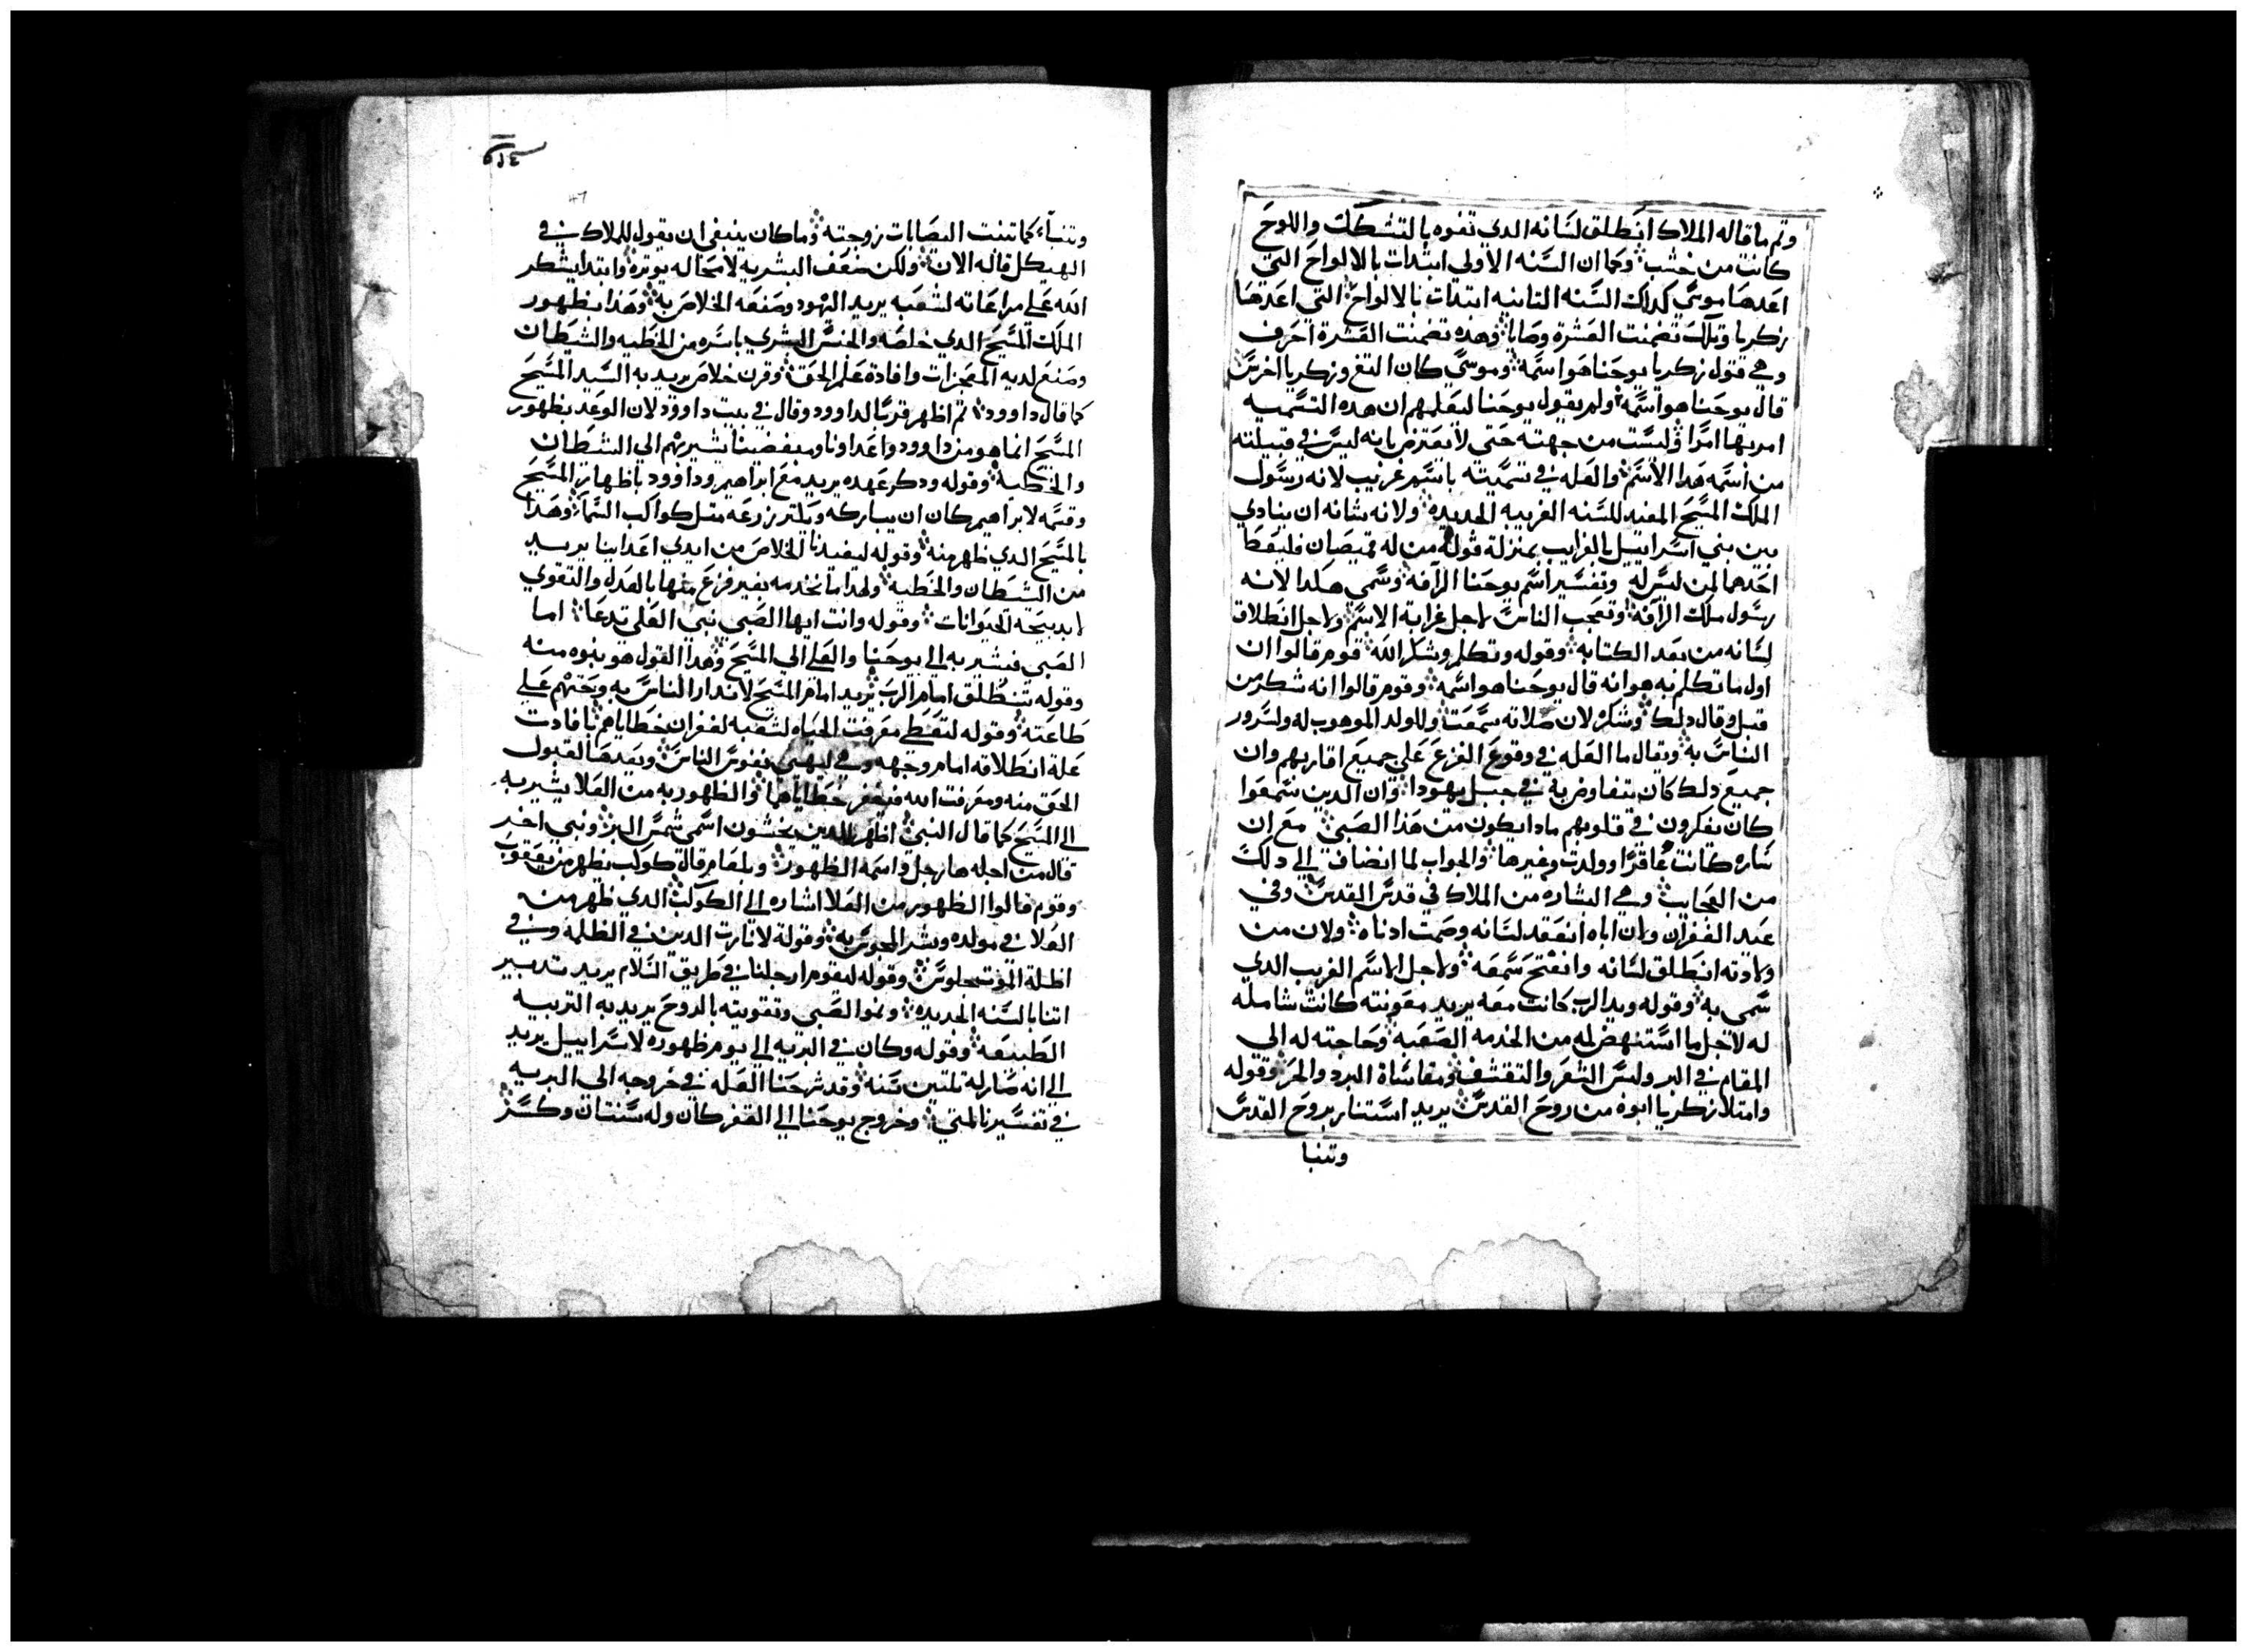 وتم ما قاله الملاك انطلق لسانه الدي تفوه بالتشكك واللوح
كانت من خشب وكما ان السنه الاولي ابتدات بالالواح التي
اعدها موسي كداك السنه التانيه ابتدات بالالواح التي اعدها
زكريا وتلك تضمنت العشرة وصايا وهده تضمنت العشرة احرف
وهي قتول زكريا يوحنا هو اسمه وموسي كان التغ وزكريا اخرس
قال يوحنا هو اسمه ولم يقول يوحنا ليعلمهم ان هده التسميه
امر بها امرا وليست من جهته حتي لا يعترض بانه ليس في قبيلته
من اسمه هدا الاسم والعله في تسميته باسم غريب لانه رسول
الملك المسيح المفيد للسنه الغريبه الجديده ولانه شانه ان ينادي
بين بني اسراييل بالغرايب بمنزلة قوله من له قميصان فليعط
احدهما لمن ليس له وتفسير اسم يوحنا الرافه وسمي هكدا لانه
رسول ملك الرافة وتعجب الناس لاجل غرابة الاسم ولاجل انطلاق
لسانه من بعد الكتابه وقوله وتكلم وشكر الله قوم قالوا ان
اول ما تكلم به هو انه قال يوحنا هو اسمه وقوم قالوا انه شكر من
قبل وقال دلك وشكره لان صلاته سمعت وللولد الموهوب له ولسرور
الناس به ويقال ما العله في وقوع الفزع علي جميع اقاربهم وان
جميع دلك كان يتفاوض به في جبل يهودا وان الدين سمعوا
كان يفكرون في قلوبهم مادا يكون من هدا الصبي مع ان
ساره كانت عاقرا وولدت وغيرها والجواب لما انضاف الي دلك
من العجايب وهي البشاره من الملاك في قدس القدس وفي
عيد الغفران وان اباه انعقد لسانه وصمت ادناه ولان من
ولادته انطلق لسانه وانفتح سمعه ولاجل الاسم الغريب الدي
سمي به وقوله ويد الرب كانت معه يريد معونته كانت شامله
له لاجل ما استنهض له من الخدمه الصعبه وحاجته له الي
المقام في البر ولبس الشعر والتقشف ومقاساة البرد والحر وقوله
وامتلا زكريا ابوه من روح القدس يريد استنار بروح القدس
وتنبا
وتنبا كما تنبت اليصابات زوجته وما كان ينبغي ان يقول للملاك في
الهيكل قاله الان ولكن ضعف البشريه لا محاله يوتره وابتدا يشكر
الله علي مراعاته لشعبه يريد اليهود وصنعه الخلاص به وهدا بظهور
الملك المسيح الدي خلصه والجنس البشري باسره من الخطيه والشيطان
وصنع لديه المعجزات وافادة علم الحق وقرن خلاص يريد به السيد المسيح
كما قال داوود تم اظهر قرنا لداوود وقال في بيت داوود لان الوعد بظهور
المسيح انما هو من داوود واعداونا ومبغضينا يشير بهم الي الشيطان
والخطيه وقوله ودكر عهده يريد مع ابراهيم وداوود باظهار المسيح
وقسمه لابراهيم كان ان يباركه ويكتر زرعه متل كواكب السما وهدا
بالمسيح الدي ظهر منه وقوله ليفيدنا الخلاص من ايدي اعداينا يريد
من الشيطان والخطيه ولهدا ما نخدمه بغير فزع منها بالعدل والتقوي
لا بدبيحة الحيوانات وقوله وانت ايها الصبي نبي العلي تدعا اما
الصبي فيشير به الي يوحنا والعلي الي المسيح وهدا القول هو بنبوه منه
وقوله تنطلق امام الرب يريد امام المسيح لاندار الناس به وبحتهم علي
طاعته وقوله لتعطي معرفت الحياه لشعبه لغفران خطاياهم افادت
علة انطلاقه امام وجهه وهي ليهيي نفوس الناس وبعدها لقبول
الحق منه ومعرفت الله فيغفر خطاياها والظهور به من العلا يشير به
الي المسيح كما قال النبي اظهر للدين يخشون اسمي شمس البر ونبي اخر
قال من اجله ها رجل واسمه الظهور وبلعام قال كوكب يظهر من يعقوب
وقوم قالوا الظهور من العلا اشاره الي الكوكب الدي ظهر من
العلا في مولده وبشر المجوس به وقوله لانارت الدين في الظلمه وفي
اظلة الموت جلوس وقوله ليقوم ارجلنا في طريق السلام يريد تدبير
اتنا بالسنه الجديده ونمو الصبي وتقويته بالروح يريد به التربيه
الطبيعه وقوله وكان في البريه الي يوم ظهوره لاسراييل يريد
الي انه صار له تلتين سنه وقد شرحنا العله في خروجه الي البريه
في تفسيرنا لمتي وخروج يوحنا الي القفر كان وله سنتان وكسر